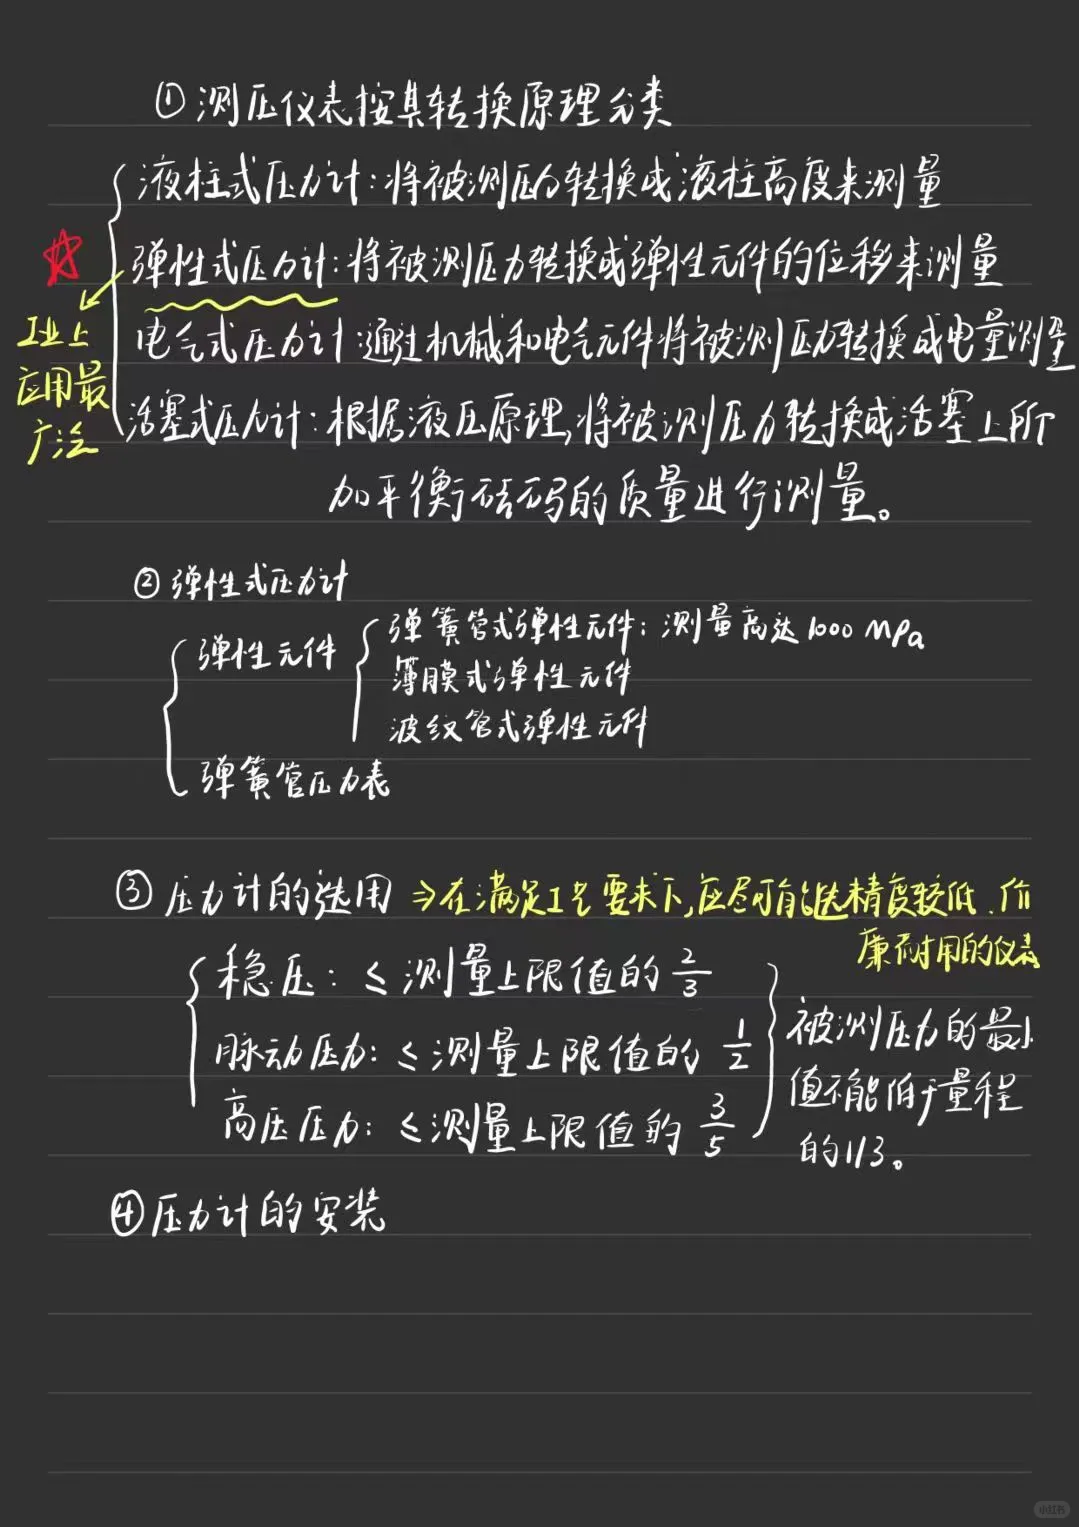 ①测压仪表按其转换原理分类
液柱式压力计:将被测压力转换成液柱高度来测量
弹性式压力计:将被测压力转换成弹性元件的位移来测量
工业上
应用最
广泛
电气式压力计:通过机械和电气元件将被测压力转换成电量测量
活塞式压力计:根据液压原理,将被测压力转换成活塞上所
加平衡砝码的质量进行测量。
②弹性式压力计
弹性元件
弹簧管式弹性元件:测量高达1000 MPa
薄膜式弹性元件
波纹管式弹性元件
弹簧管压力表
③压力计的选用 ⇒在满足工艺要求下,应尽可能选精度较低、价
廉耐用的仪表
稳压:≤测量上限值的 2/3
脉动压力:≤测量上限值的 1/2
高压压力:≤测量上限值的 3/5
被测压力的最小
值不能低于量程
的1/3。
④压力计的安装
小红书